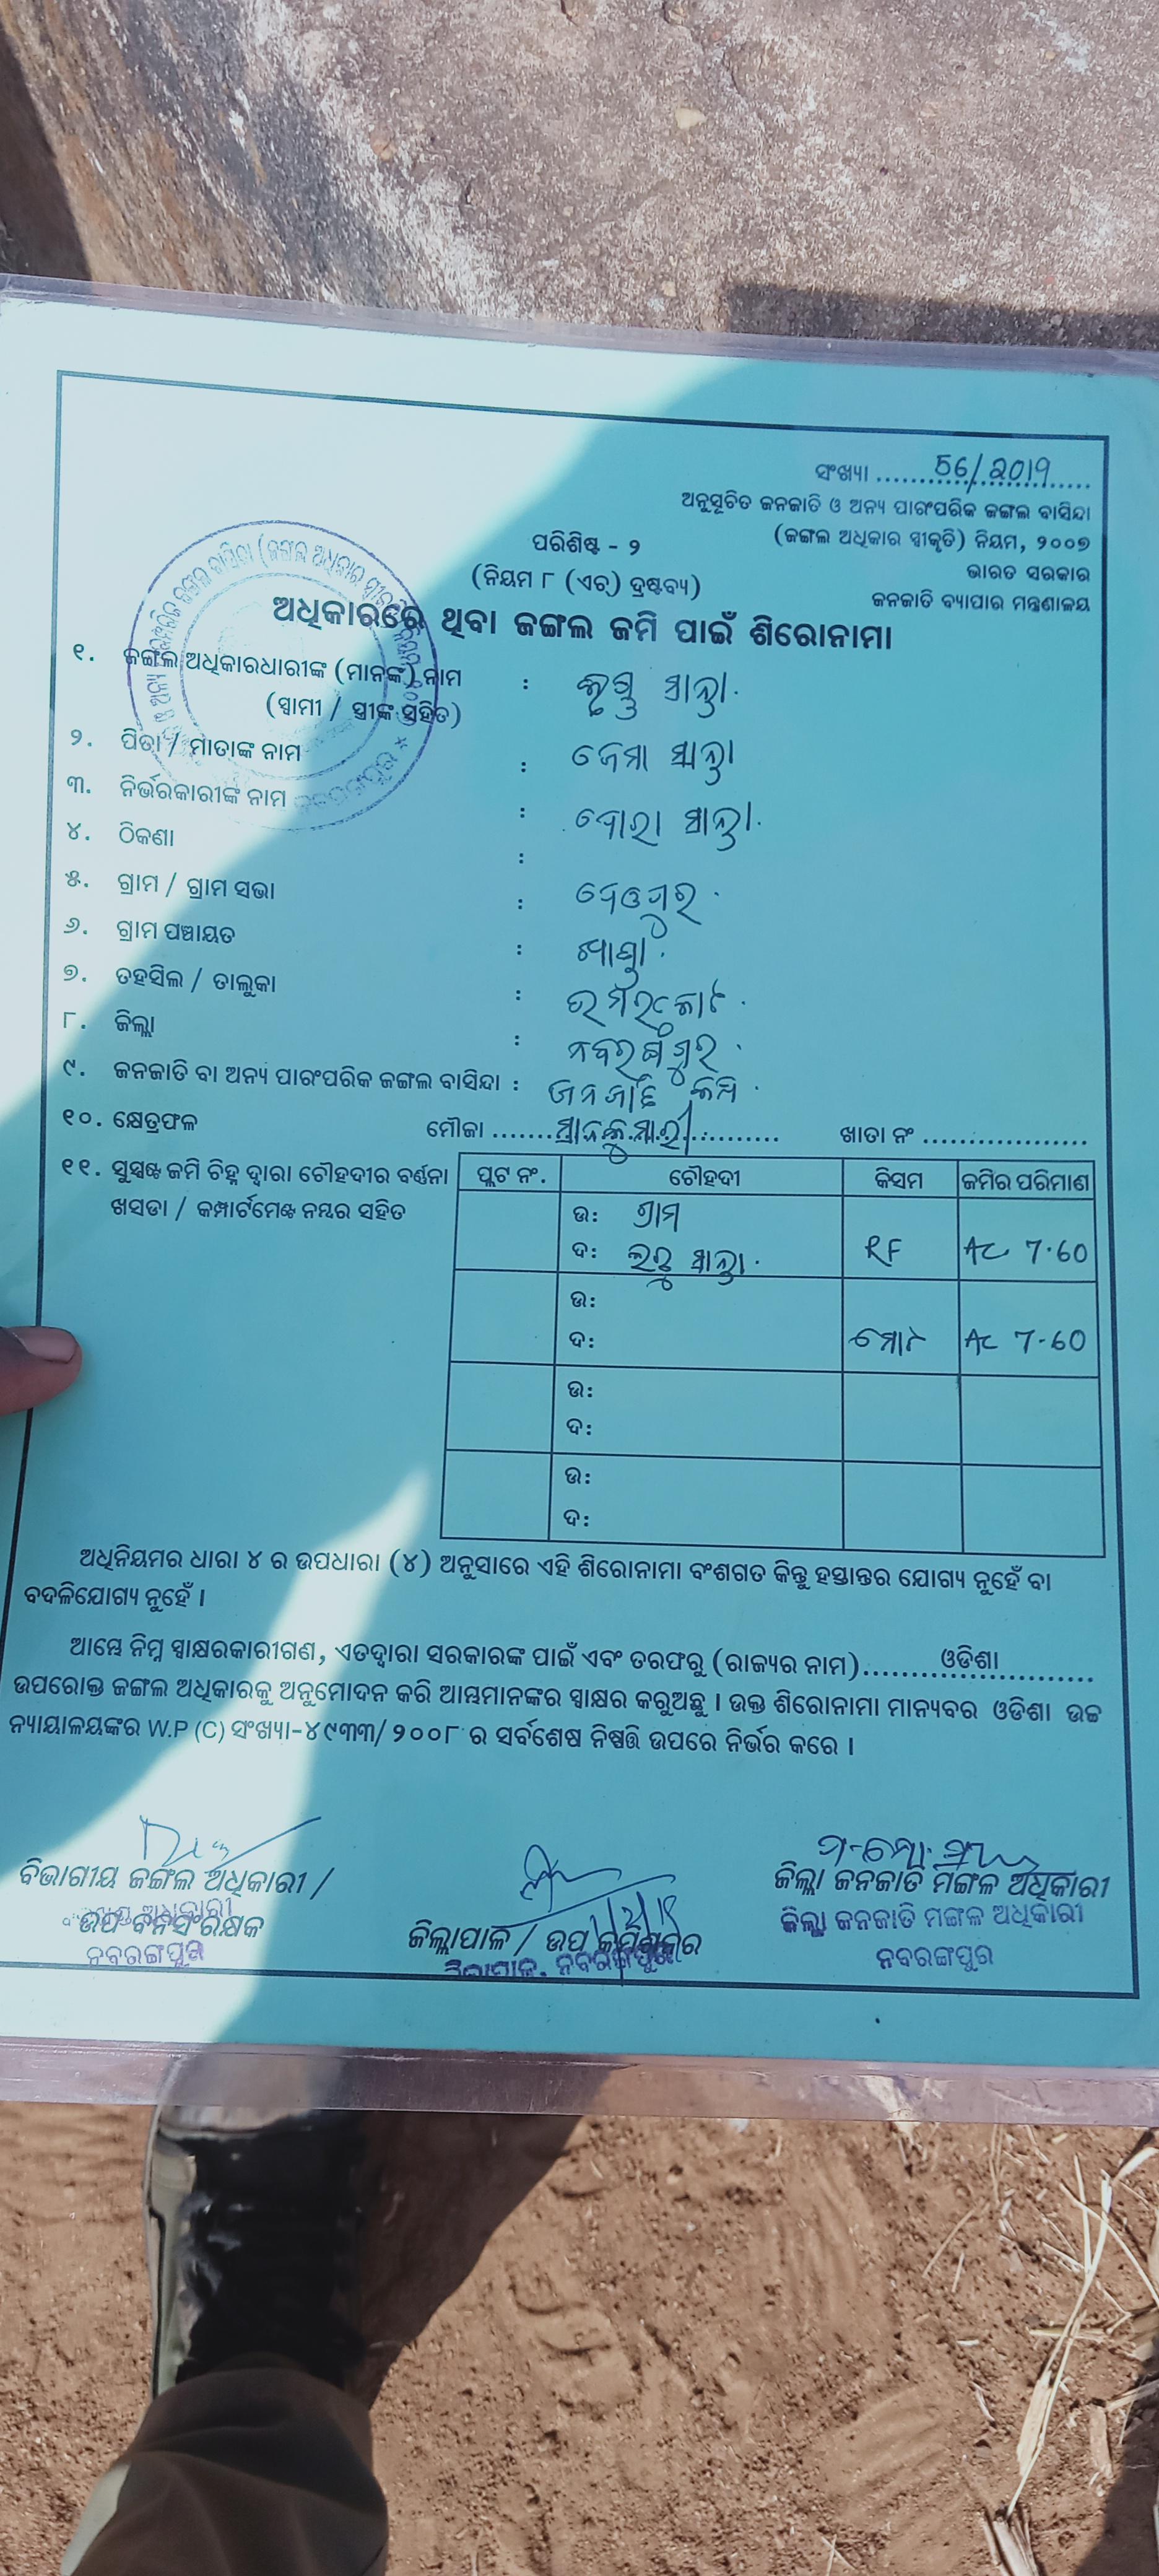 ସଂଖ୍ୟା ......56/2019......
ଅନୁସୂଚିତ ଜନଜାତି ଓ ଅନ୍ୟ ପାରଂପରିକ ଜଙ୍ଗଲ ବାସିନ୍ଦା
(ଜଙ୍ଗଲ ଅଧିକାର ସ୍ୱୀକୃତି) ନିୟମ, ୨୦୦୭
ଭାରତ ସରକାର
ଜନଜାତି ବ୍ୟାପାର ମନ୍ତ୍ରଣାଳୟ
ପରିଶିଷ୍ଟ - ୨
(ନିୟମ ୮ (ଏଚ୍) ଦ୍ରଷ୍ଟବ୍ୟ)
ଅଧିକାରରେ ଥିବା ଜଙ୍ଗଲ ଜମି ପାଇଁ ଶିରୋନାମା
୧. ଜଙ୍ଗଲ ଅଧିକାରଧାରୀଙ୍କ (ମାନଙ୍କ) ନାମ :
(ସ୍ୱାମୀ / ସ୍ତ୍ରୀଙ୍କ ସହିତ)
୨. ପିତା / ମାତାଙ୍କ ନାମ :
୩. ନିର୍ଭରକାରୀଙ୍କ ନାମ :
୪. ଠିକଣା :
୫. ଗ୍ରାମ / ଗ୍ରାମ ସଭା :
୬. ଗ୍ରାମ ପଞ୍ଚାୟତ :
୭. ତହସିଲ / ତାଲୁକା : ଉମରକୋଟ
୮. ଜିଲ୍ଲା : ନବରଙ୍ଗପୁର
୯. ଜନଜାତି ବା ଅନ୍ୟ ପାରଂପରିକ ଜଙ୍ଗଲ ବାସିନ୍ଦା : ଜନଜାତି
୧୦. କ୍ଷେତ୍ରଫଳ ମୌଜା ............ ଖାତା ନଂ ............
୧୧. ସୁସ୍ପଷ୍ଟ ଜମି ଚିହ୍ନ ଦ୍ୱାରା ଚୌହଦୀର ବର୍ଣ୍ଣନା
ଖସଡା / କମ୍ପାର୍ଟମେଣ୍ଟ ନମ୍ବର ସହିତ
ପ୍ଲଟ ନଂ. ଚୌହଦୀ କିସମ ଜମିର ପରିମାଣ
ଉ: ଗ୍ରାମ
ଦ: RF AC 7.60
ଉ:
ଦ: ମୋଟ AC 7-60
ଉ:
ଦ:
ଉ:
ଦ:
ଅଧିନିୟମର ଧାରା ୪ ର ଉପଧାରା (୪) ଅନୁସାରେ ଏହି ଶିରୋନାମା ବଂଶଗତ କିନ୍ତୁ ହସ୍ତାନ୍ତର ଯୋଗ୍ୟ ନୁହେଁ ବା
ବଦଳିଯୋଗ୍ୟ ନୁହେଁ ।
ଆମ୍ଭେ ନିମ୍ନ ସ୍ୱାକ୍ଷରକାରୀଗଣ, ଏତଦ୍ୱାରା ସରକାରଙ୍କ ପାଇଁ ଏବଂ ତରଫରୁ (ରାଜ୍ୟର ନାମ)......ଓଡିଶା......
ଉପରୋକ୍ତ ଜଙ୍ଗଲ ଅଧିକାରକୁ ଅନୁମୋଦନ କରି ଆମ୍ଭମାନଙ୍କର ସ୍ୱାକ୍ଷର କରୁଅଛୁ । ଉକ୍ତ ଶିରୋନାମା ମାନ୍ୟବର ଓଡିଶା ଉଚ୍ଚ
ନ୍ୟାୟାଳୟଙ୍କର W.P (C) ସଂଖ୍ୟା-୪୯୩୩/୨୦୦୮ ର ସର୍ବଶେଷ ନିଷ୍ପତ୍ତି ଉପରେ ନିର୍ଭର କରେ ।
ବିଭାଗୀୟ ଜଙ୍ଗଲ ଅଧିକାରୀ /
ଉପ ବନସଂରକ୍ଷକ
ନବରଙ୍ଗପୁର
ଜିଲ୍ଲାପାଳ / ଉପ କମିଶନର
ଜିଲ୍ଲାପାଳ, ନବରଙ୍ଗପୁର
ଜିଲ୍ଲା ଜନଜାତି ମଙ୍ଗଳ ଅଧିକାରୀ
ଜିଲ୍ଲା ଜନଜାତି ମଙ୍ଗଳ ଅଧିକାରୀ
ନବରଙ୍ଗପୁର